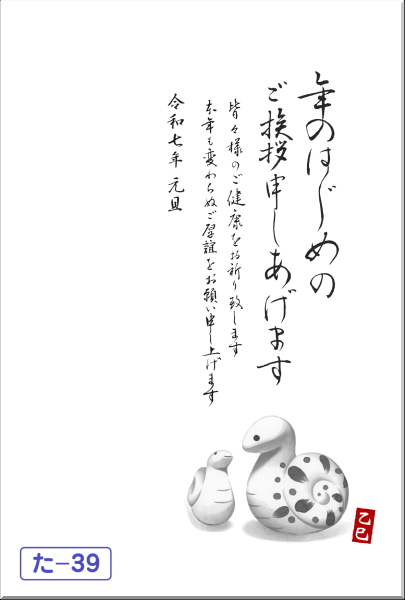 年のはじめの
ご挨拶申しあげます
皆々様のご健康をお祈り致します
本年も変わらぬご厚誼をお願い申し上げます
令和七年 元旦
乙巳
た-39